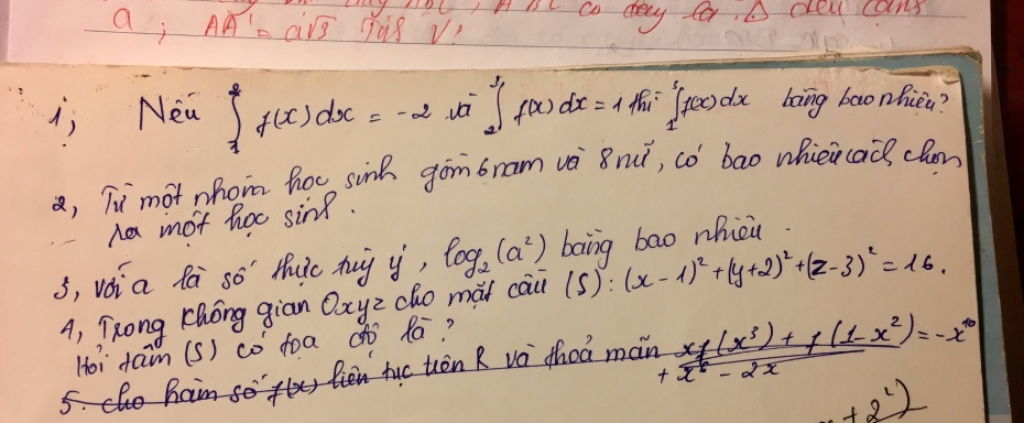 a ; AA' = a√3
1, Nếu ∫₁² f(x) dx = -2 và ∫₂³ f(x) dx = 1 thì ∫₁³ f(x) dx bằng bao nhiêu?
2, Từ một nhóm học sinh gồm 6 nam và 8 nữ, có bao nhiêu cách chọn
ra một học sinh.
3, Với a là số thực tuỳ ý, log₂(a²) bằng bao nhiêu.
4, Trong không gian Oxyz cho mặt cầu (S): (x-1)² + (y+2)² + (z-3)² = 16.
Hỏi tâm (S) có toạ độ là?
5. cho hàm số f(x) liên tục trên R và thoả mãn xf(x³) + f(1-x²) = -x¹⁰
+ x⁶ - 2x
+ 2²)